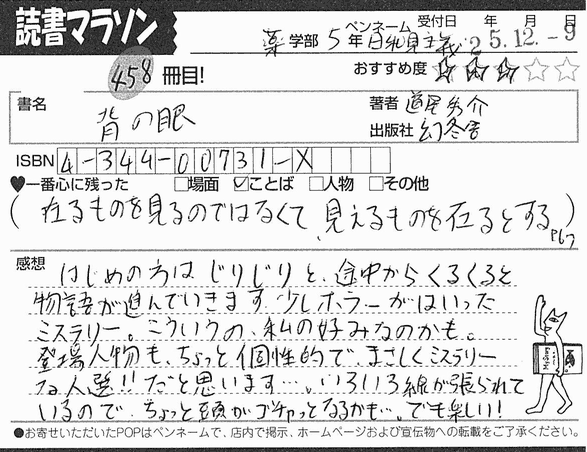 読書マラソン
458冊目!
薬学部 5年 ペンネーム 日和見主義 受付日 年 月 日
25.12.-9
おすすめ度 ☆☆☆☆☆
書名 背の眼
著者 道尾秀介
出版社 幻冬舎
ISBN 4-344-00731-X
♥一番心に残った □場面 ☑ことば □人物 □その他
(在るものを見るのではなくて、見えるものを在るとする。)
P67
感想 はじめの方はじりじりと、途中からくるくると
物語が進んでいきます。少しホラーがはいった
ミステリー。こういうの、私の好みなのかも。
登場人物も、ちょっと個性的で、まさしくミステリー
な人選!!だと思います…。いろいろ線が張られて
いるので、ちょっと頭がゴチャっとなるかも…。でも楽しい!
●お寄せいただいたPOPはペンネームで、店内で掲示、ホームページおよび宣伝物への転載をご了承ください。